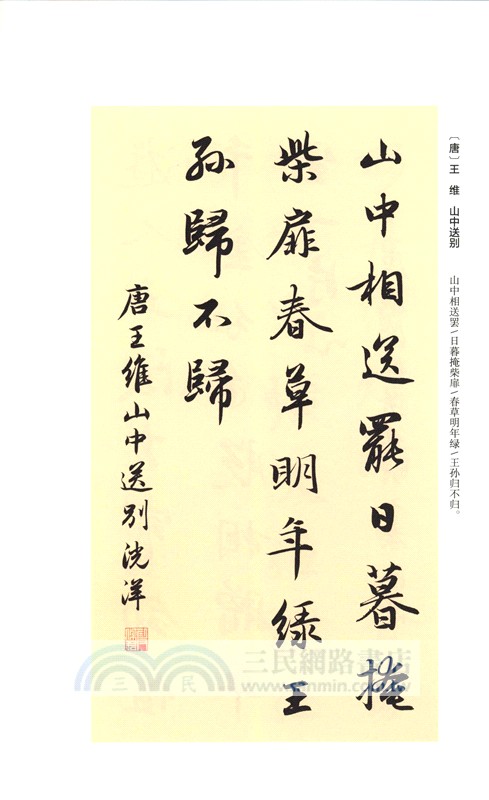 〔唐〕王　维　山中送别　　山中相送罢／日暮掩柴扉／春草明年绿／王孙归不归。
山中相送罷日暮掩
柴扉春草明年绿王
孙歸不歸
唐王维山中送别洗洋
三民網路書店
三民
www.sanmin.com.tw